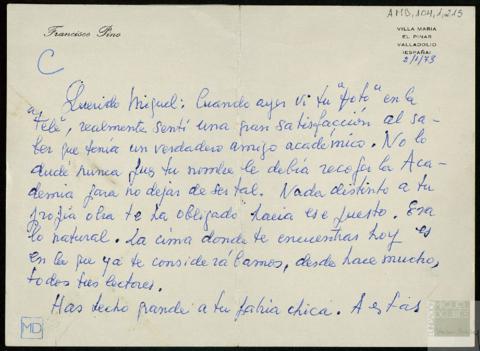 AMD, 104, 1, 215
Francisco Pino
VILLA MARIA
EL PINAR
VALLADOLID
(ESPAÑA)
2/2/73
C
Querido Miguel: Cuando ayer vi tu "foto" en la
"Tele", realmente sentí una gran satisfacción al sa-
ber que tenía un verdadero amigo académico. No lo
dudé nunca pues tu nombre le debía recoger la Aca-
demia para no dejar de ser tal. Nada distinto a tu
propia obra te ha obligado hacia ese puesto. Era
lo natural. La cima donde te encuentras hoy es
en la que ya te considerábamos, desde hace mucho,
todos tus lectores.
Has hecho grande a tu patria chica. A estas
MD